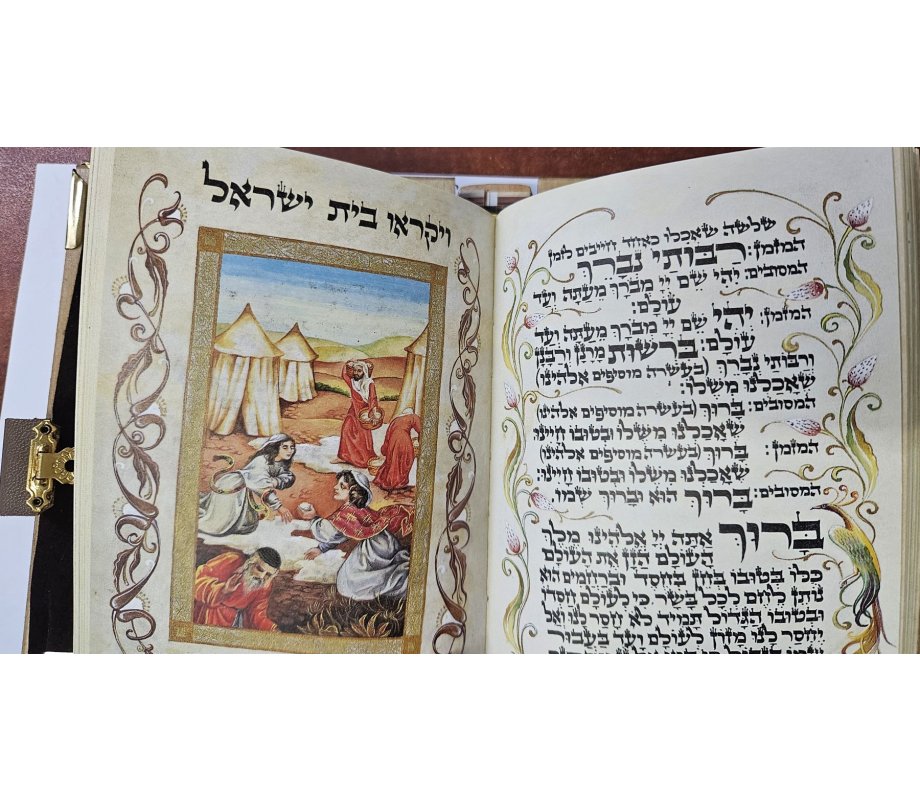 ויקראו בית ישראל
שלשה שאכלו כאחד חייבים לזמן
המזמן: רַבּוֹתַי נְבָרֵךְ
המסובים: יְהִי שֵׁם יְיָ מְבֹרָךְ מֵעַתָּה וְעַד
עוֹלָם:
המזמן: יְהִי שֵׁם יְיָ מְבֹרָךְ מֵעַתָּה וְעַד
עוֹלָם: בִּרְשׁוּת מָרָנָן וְרַבָּנָן
וְרַבּוֹתַי נְבָרֵךְ (בעשרה מוסיפים אלהינו)
שֶׁאָכַלְנוּ מִשֶּׁלוֹ:
המסובים: בָּרוּךְ (בעשרה מוסיפים אלהינו)
שֶׁאָכַלְנוּ מִשֶּׁלוֹ וּבְטוּבוֹ חָיִינוּ:
המזמן: בָּרוּךְ (בעשרה מוסיפים אלהינו)
שֶׁאָכַלְנוּ מִשֶּׁלוֹ וּבְטוּבוֹ חָיִינוּ:
המסובים: בָּרוּךְ הוּא וּבָרוּךְ שְׁמוֹ.
בָּרוּךְ אַתָּה יְיָ אֱלֹהֵינוּ מֶלֶךְ
הָעוֹלָם הַזָּן אֶת הָעוֹלָם
כֻּלּוֹ בְּטוּבוֹ בְּחֵן בְּחֶסֶד וּבְרַחֲמִים הוּא
נוֹתֵן לֶחֶם לְכָל בָּשָׂר כִּי לְעוֹלָם חַסְדּוֹ
וּבְטוּבוֹ הַגָּדוֹל תָּמִיד לֹא חָסַר לָנוּ וְאַל
יֶחְסַר לָנוּ מָזוֹן לְעוֹלָם וָעֶד בַּעֲבוּר